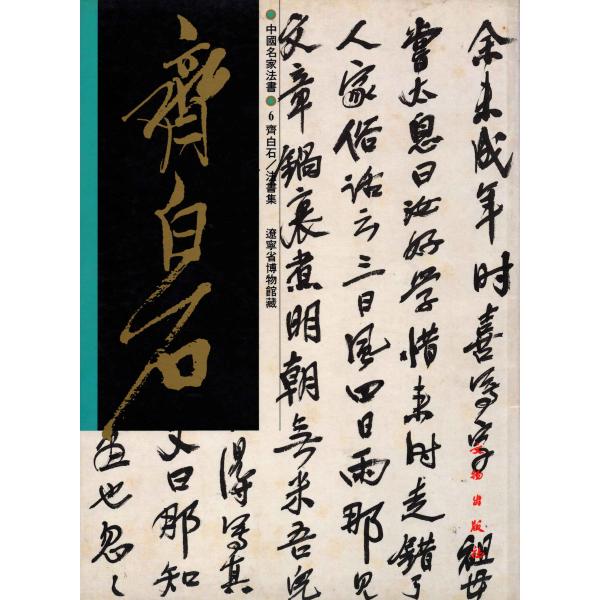 齊白石
中國名家法書 6 齊白石／法書集 遼寧省博物館藏
余未成年时喜寫字祖母
嘗太息曰汝好學惜来时走錯了
人家俗语云三日風四日雨那見
文章鍋裏煮明朝無米吾兒
得寫真
又曰那知
也忽々
文物出版社